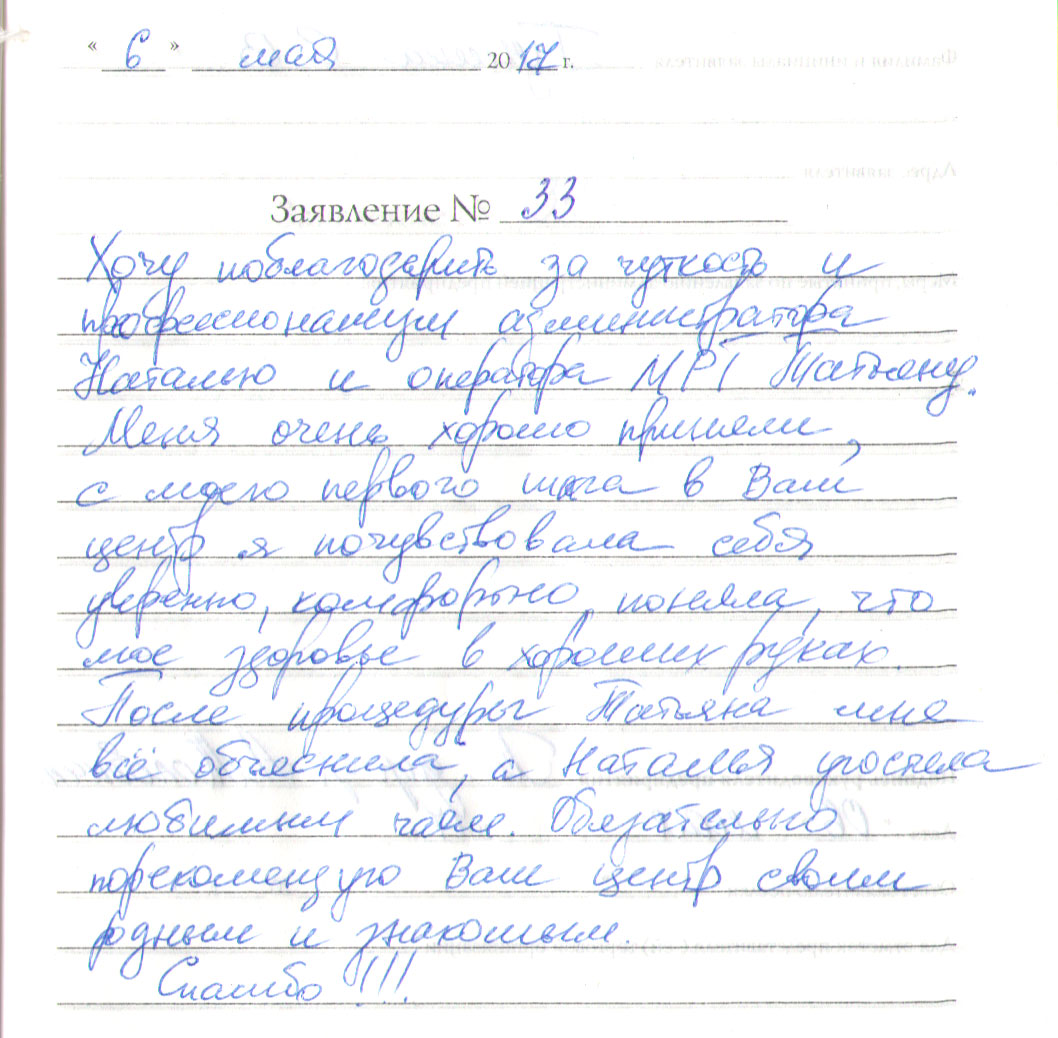 « 6 » мая 2017 г.
Заявление № 33
Хочу поблагодарить за чуткость и
профессионализм администратора
Наталью и оператора МРТ Татьяну.
Меня очень хорошо приняли,
с моего первого шага в Ваш
центр я почувствовала себя
уверенно, комфортно, поняла, что
мое здоровье в хороших руках.
После процедуры Татьяна мне
всё объяснила, а Наталья угостила
любимым чаем. Обязательно
порекомендую Ваш центр своим
родным и знакомым.
Спасибо!!!